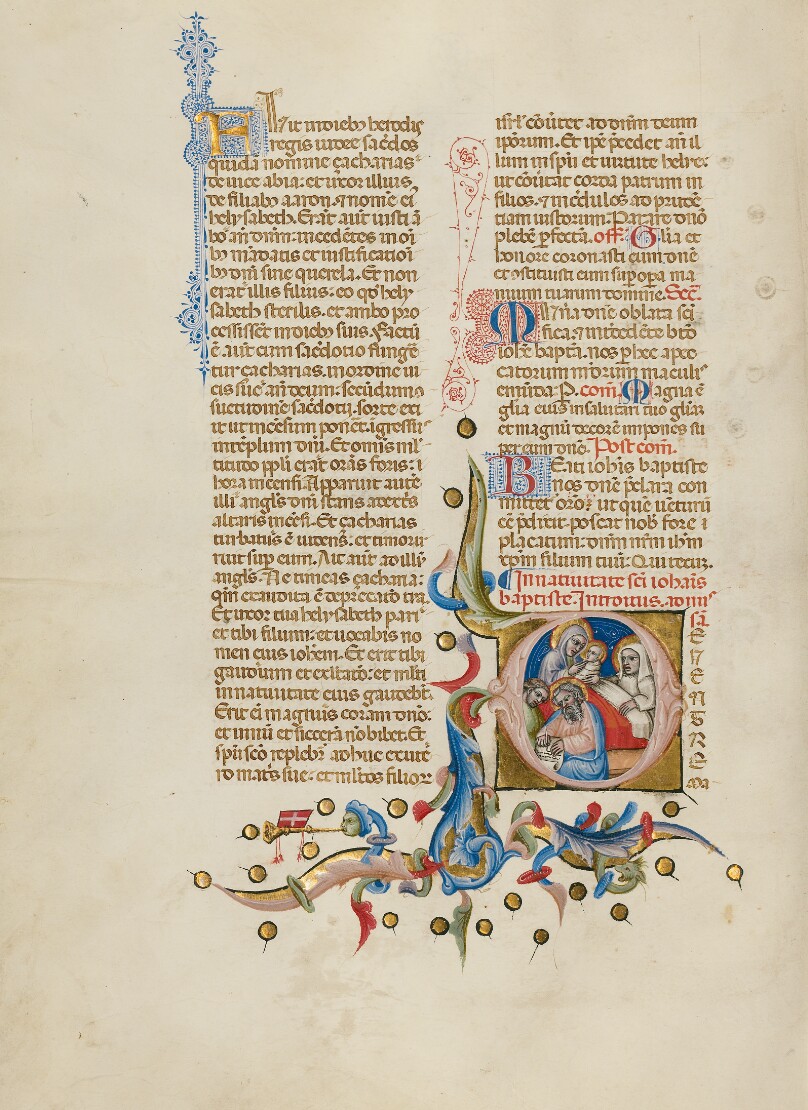 Fuit in dieb9 herodis
regis iudee sacdos
quidā nomine çacharias
de uice abia: et uxor illius
de filiab9 aaron. et nomē ei9
helysabeth. Erāt aūt iusti ā
bo añ dnm: incedētes in oī
b9 mādatis et iustificatioī
b9 dni sine querela. Et non
erat illis filius. eo qd hely
sabeth sterilis. et ambo pro
cessissēt in dieb9 suis. Factū
ē aūt cum sacdotio funge
tur çacharias. in ordine ui
cis sue añ deum: secūdum 9
suetudinē sacdotij. sorte exi
it ut incēsum poneret. īgressus
in tēplum dni. Et omīs ml
titudo ppli erat orās foris: i
hora incensi. Apparuit autē
illi angls dni stans a dextris
altaris incēsi. Et çacharias
turbatus ē uidens: et timor ir
ruit sup eum. Ait aūt ad illū
angls. Ne timeas çacharia:
qm̄ exaudita ē deprecatio tua.
Et uxor tua helysabeth pariet
et tibi filium: et uocabis no
men eius iohem. Et erit tibi
gaudium et exltatio: et mlti
in natiuitate eius gaudebt.
Erit ei magnus coram dno:
et uinū et siccera nō bibet. Et
spū sco replebr adhuc ex ute
ro matris sue: et mltos filior
isrl cōuertet ad dnm deum
ipsorum. Et ipe pcedet an il
lum in spū et uirtute helye:
ut cōuertat corda patrum in
filios. et incdulos ad prudē
tiam iustorum. Parare dno
plebē pfectā. off. Glia et
honore coronasti eum dne
et ostituisti eum sup opa ma
nuum tuarum domine. Sec.
Munā dne oblata sci
fica. et intcedēte bto
iohe bapta. nos p hec a pec
catorum nrorum maculis
emūda. P. com. Magna ē
glia eius in salutari tuo gliam
et magnū decorē impones su
per eum dne. Post com.
Beati iohis baptiste
nos dne pclara con
mitter oro: ut que uēturū
ēe pdixit poscat nob fore
placatum: dnm nrm ihm
xpm filium tuū. Qui tecum.
In natiuitate sci iohis
baptiste. Introitus. ad mis
sā
DE
VEN
TRE
MA